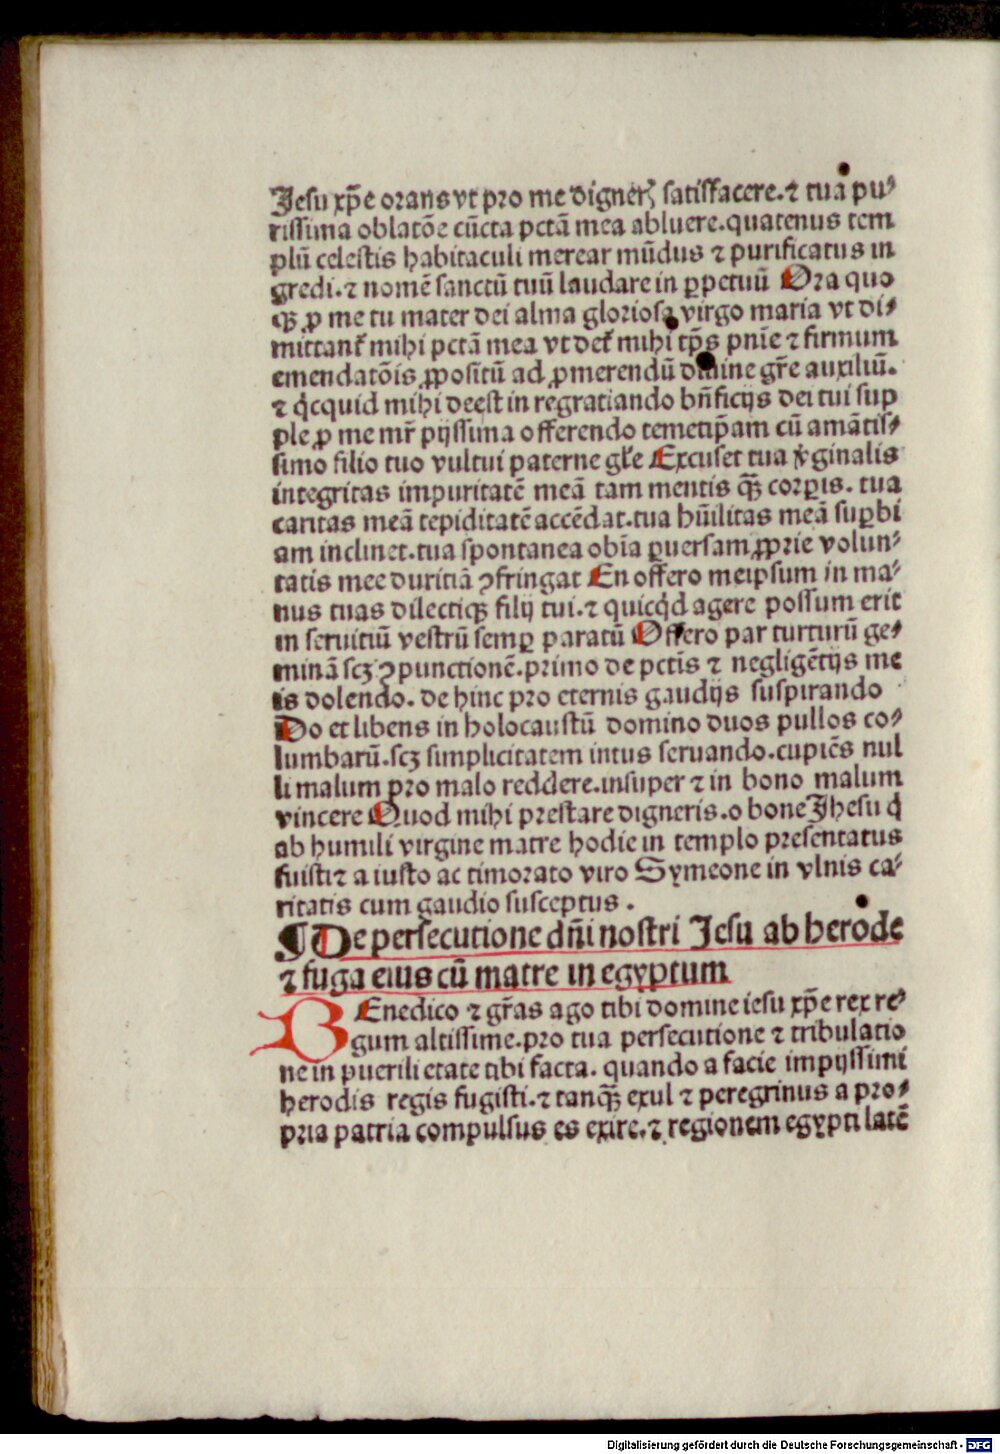 Jesu xp̄e orans vt pro me digneꝝ satisfacere.⁊ tua pu⸗
rissima oblatōe cūcta pctā mea abluere.quatenus tem
plū celestis habitaculi merear mūdus ⁊ purificatus in
gredi.⁊ nomē sanctū tuū laudare in ꝑpetuū Ora quo
qꝫ ꝓ me tu mater dei alma gloriosa virgo maria vt di⸗
mittant᷑ mihi pctā mea vt det᷑ mihi tp̄s pn̄ie ⁊ firmum
emendatōis ꝓpositū ad ꝓmerendū diuine gr̄e auxiliū.
⁊ qͥcquid mihi deest in regratiando bn̄ficijs dei tui sup
ple ꝓ me mr̄ pijssima offerendo temetip̄am cū amātis⸗
simo filio tuo vultui paterne gl̄e Excuset tua v̓ginalis
integritas impuritatē meā tam mentis qꝫ̄ corꝑis. tua
caritas meā tepiditatē accēdat.tua hūilitas meā suꝑbi
am inclinet.tua spontanea obīa ꝑuersam ꝓprie volun⸗
tatis mee duritiā ꝯfringat En offero meipsum in ma⸗
nus tuas dilectiqꝫ filij tui.⁊ quicqͥd agere possum erit
in seruitiū vestrū semꝑ paratū Offero par turturū ge⸗
minā scꝫ ꝯpunctionē.primo de pctīs ⁊ negligētijs me
is dolendo. de hinc pro eternis gaudijs suspirando
Do et libens in holocaustū domino duos pullos co⸗
lumbarū.scꝫ simplicitatem intus seruando.cupiēs nul
li malum pro malo reddere.insuper ⁊ in bono malum
vincere Quod mihi prestare digneris.o bone Jhesu qͥ
ab humili virgine matre hodie in templo presentatus
fuisti⁊ a iusto ac timorato viro Symeone in vlnis ca⸗
ritatis cum gaudio susceptus .
¶ De persecutione dn̄i nostri Jesu ab herode
⁊ fuga eius cū matre in egyptum
BEnedico ⁊ gr̄as ago tibi domine iesu xp̄e rex re⸗
gum altissime.pro tua persecutione ⁊ tribulatio
ne in puerili etate tibi facta. quando a facie impijssimi
herodis regis fugisti.⁊ tanqꝫ̄ exul ⁊ peregrinus a pro⸗
pria patria compulsus es exire.⁊ regionem egypti latē
Digitalisierung gefördert durch die Deutsche Forschungsgemeinschaft - DFG